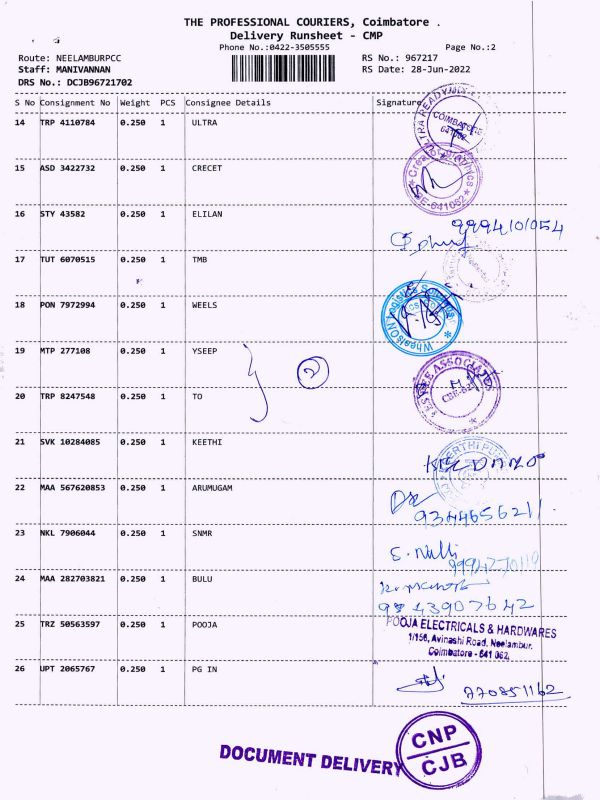 THE PROFESSIONAL COURIERS, Coimbatore .
Delivery Runsheet - CMP
Phone No.:0422-3505555 Page No.:2
Route: NEELAMBURPCC RS No.: 967217
Staff: MANIVANNAN RS Date: 28-Jun-2022
DRS No.: DCJB96721702
S No Consignment No Weight PCS Consignee Details Signature
14 TRP 4110784 0.250 1 ULTRA
COIMBATORE
15 ASD 3422732 0.250 1 CRECET
16 STY 43582 0.250 1 ELILAN
9994101054
17 TUT 6070515 0.250 1 TMB
18 PON 7972994 0.250 1 WEELS
19 MTP 277108 0.250 1 YSEEP
2
20 TRP 8247548 0.250 1 TO
21 SVK 10284085 0.250 1 KEETHI
22 MAA 567620853 0.250 1 ARUMUGAM
9344656211
23 NKL 7906044 0.250 1 SNMR
24 MAA 282703821 0.250 1 BULU
25 TRZ 50563597 0.250 1 POOJA
POOJA ELECTRICALS & HARDWARES
1/156, Avinashi Road, Neelambur.
Coimbatore - 641 062.
26 UPT 2065767 0.250 1 PG IN
770851162
DOCUMENT DELIVERY
CNP
CJB